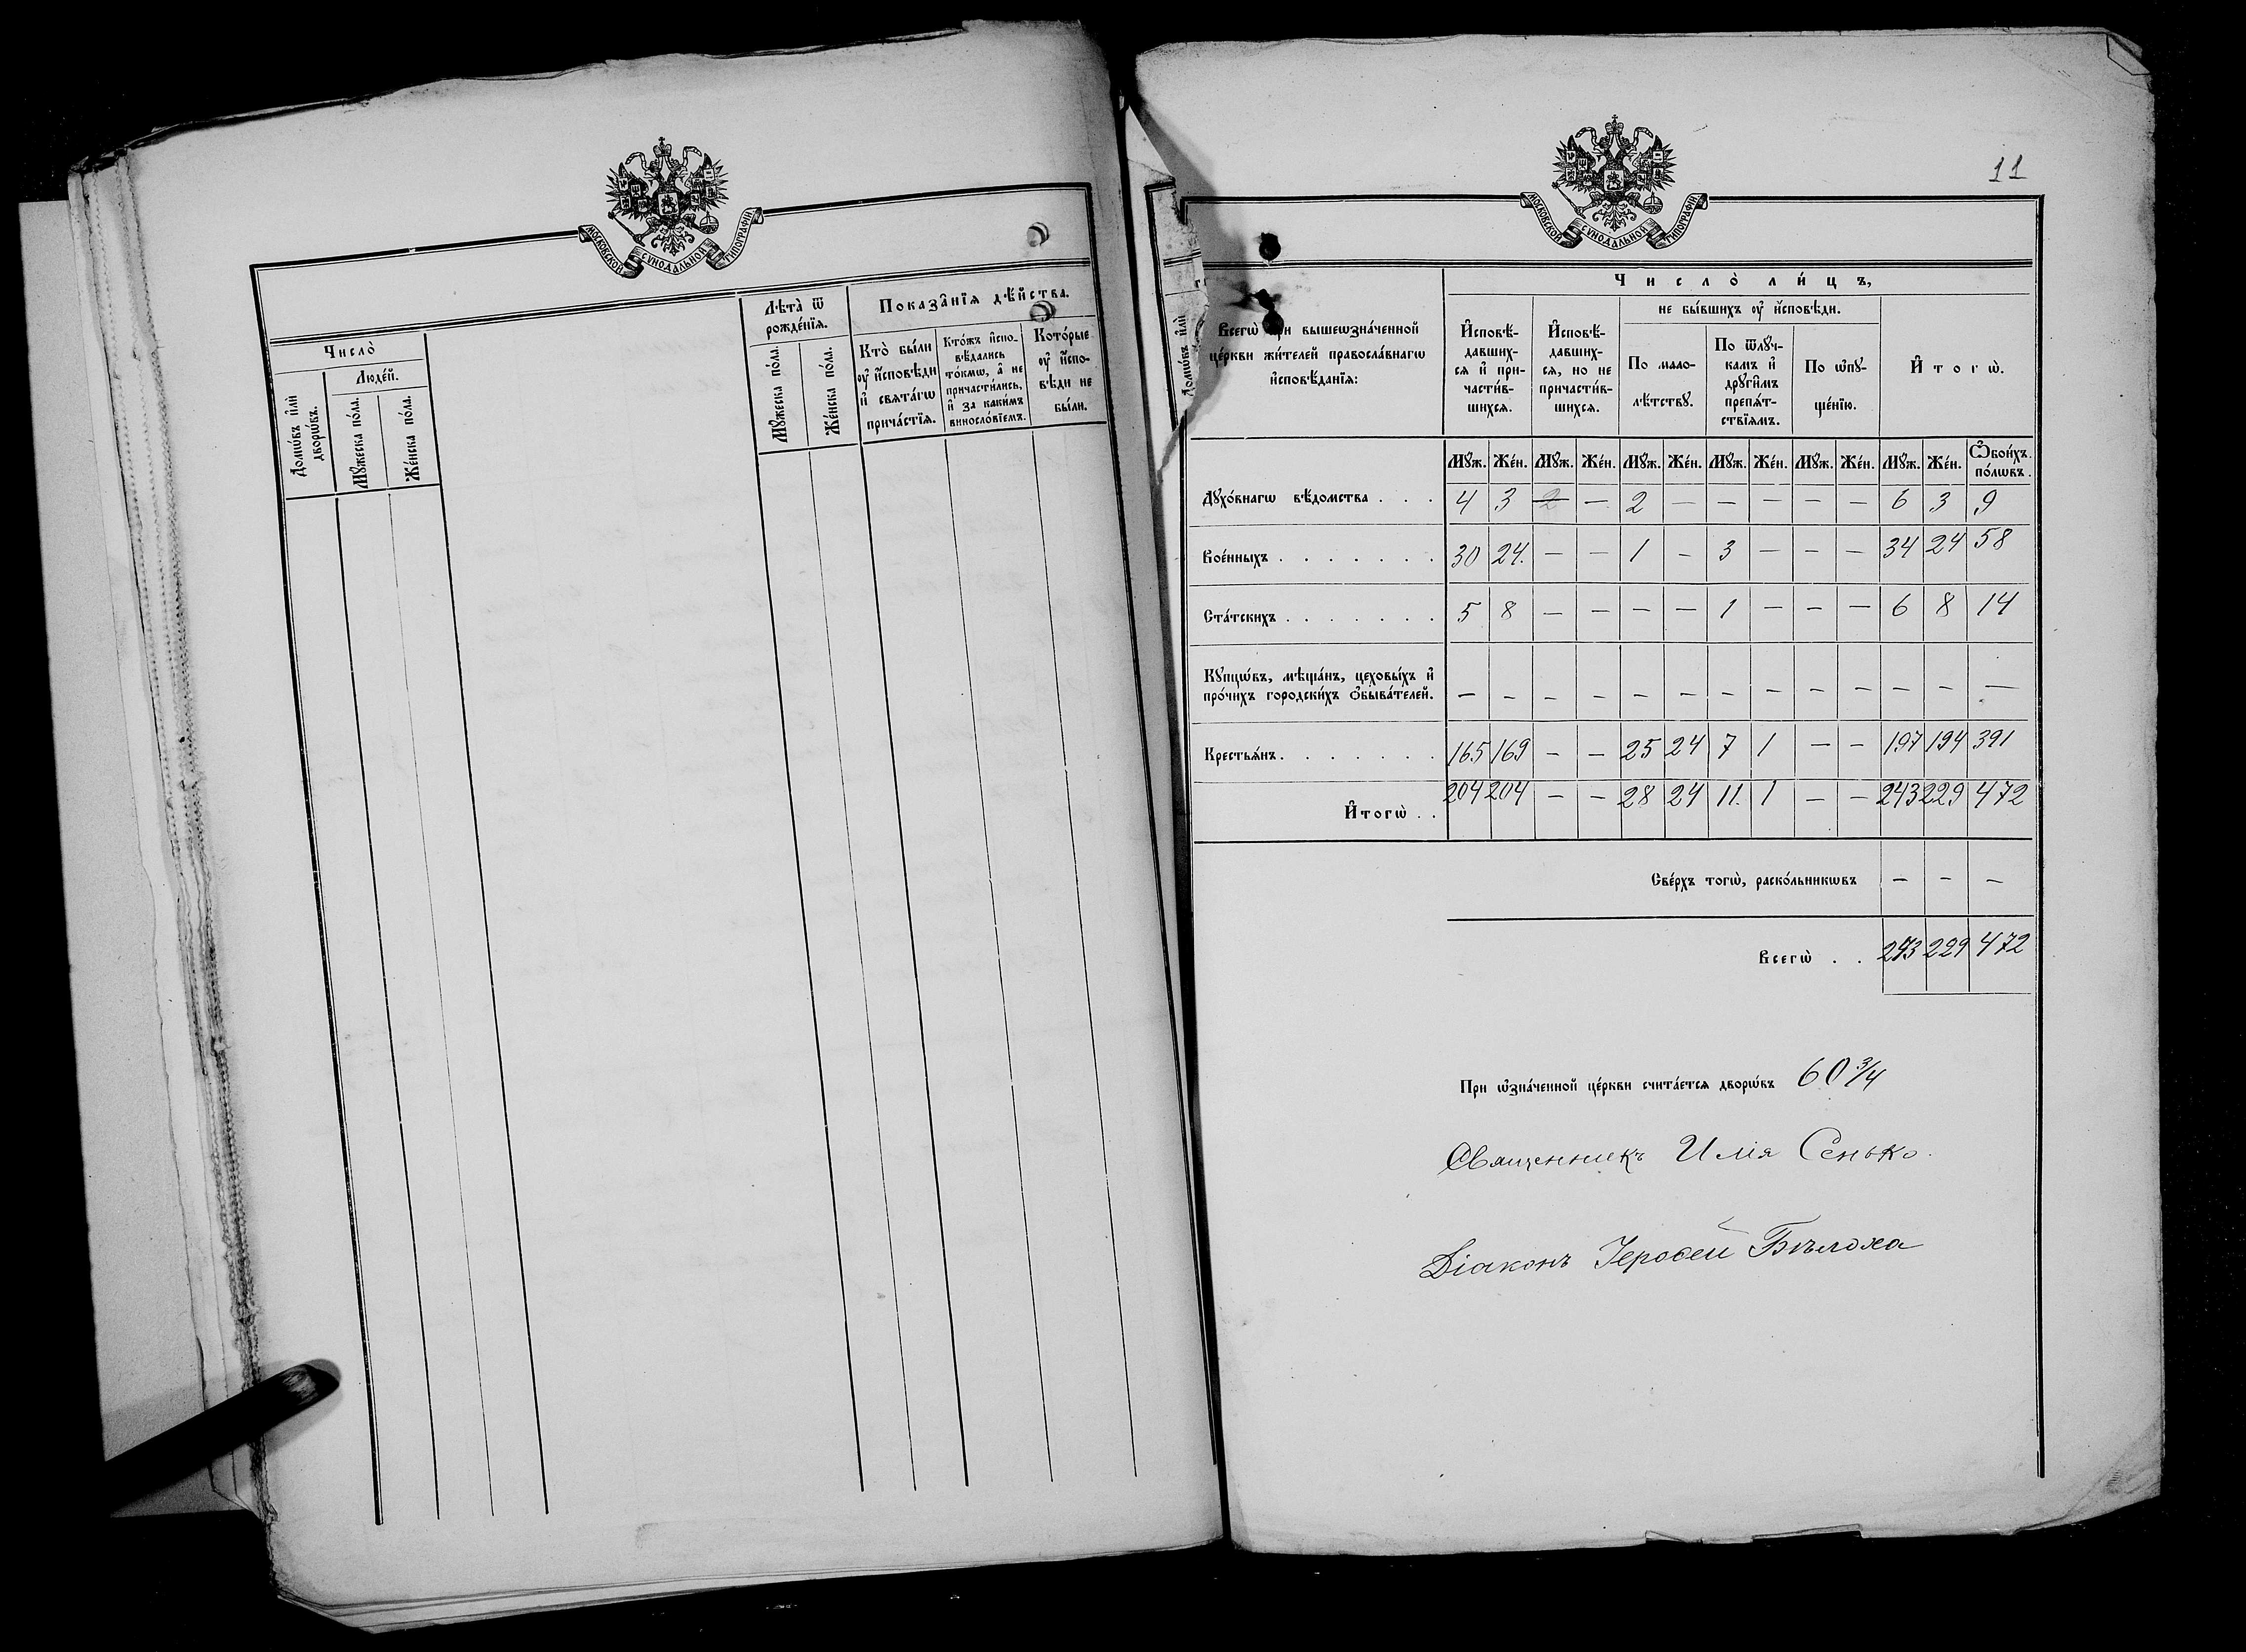 МОСКОВСКОЙ СѴНОДАЛЬНОЙ ТИПОГРАФІИ
Число̀
Людѐй.
Домѡ́въ и҆лѝ
дворѡ́въ.
Мꙋ́жеска по́ла.
Же́нска по́ла.
Лѣта̀ ѿ
рожде́нїѧ.
Мꙋ́жеска по́ла.
Же́нска по́ла.
Показа̑нїѧ дѣ́йства.
Кто̀ бы́ли
оу҆ и҆́сповѣди
и҆ свѧта́гѡ
прича́стїѧ.
Кто́жъ и҆спо-
вѣ́дались
то́кмѡ, а҆ не
причасти́лись,
и҆ за каки́мъ
виносло́вїемъ.
Кото́рые
оу҆ и҆́спо-
вѣди не
бы́ли.
11
МОСКОВСКОЙ СѴНОДАЛЬНОЙ ТИПОГРАФІИ
Домѡ́въ и҆лѝ
Всегѡ̀ при вышеѡзна́ченной
це́ркви жи́телей правосла́внагѡ
и҆сповѣ́данїѧ:
Число̀ ли́цъ,
И҆сповѣ́-
давших-
сѧ и҆ при-
части́в-
шихсѧ.
И҆сповѣ́-
давших-
сѧ, но не
причасти́в-
шихсѧ.
не бы́вшихъ оу҆ и҆́сповѣди.
По мало-
лѣ́тствꙋ.
По ѿлꙋ́ч-
камъ и҆
дрꙋги̑мъ
препѧ́т-
ствїѧмъ.
По ѡ҆пꙋ-
ще́нїю.
И҆тогѡ̀.
Мꙋж. Же́н. Мꙋж. Же́н. Мꙋж. Же́н. Мꙋж. Же́н. Мꙋж. Же́н. Мꙋж. Же́н. Ѻ҆бои́хъ по́лѡвъ.
Дꙋхо́внагѡ вѣ́домства . . . 4 3 2 — 2 — — — — — 6 3 9
Вое́нныхъ . . . . . . . 30 24. — — 1 — 3 — — — 34 24 58
Ста́тскихъ . . . . . . . 5 8 — — — — 1 — — — 6 8 14
Кꙋпцѡ́въ, мѣща́нъ, цеховы́хъ и҆
про́чихъ городски́хъ ѻ҆быва́телей. — — — — — — — — — — — — —
Крестьѧ́нъ . . . . . . . 165 169 — — 25 24 7 1 — — 197 194 391
И҆тогѡ̀ . . 204 204 — — 28 24 11. 1 — — 243 229 472
Све́рхъ тогѡ̀, раско́льникѡвъ — — —
Всегѡ̀ . . 243 229 472
При ѡ҆зна́ченной це́ркви счита́етсѧ дворѡ́въ 60 3/4
Священникъ Илія Сенько.
Діаконъ Іероѳей Бѣлоха